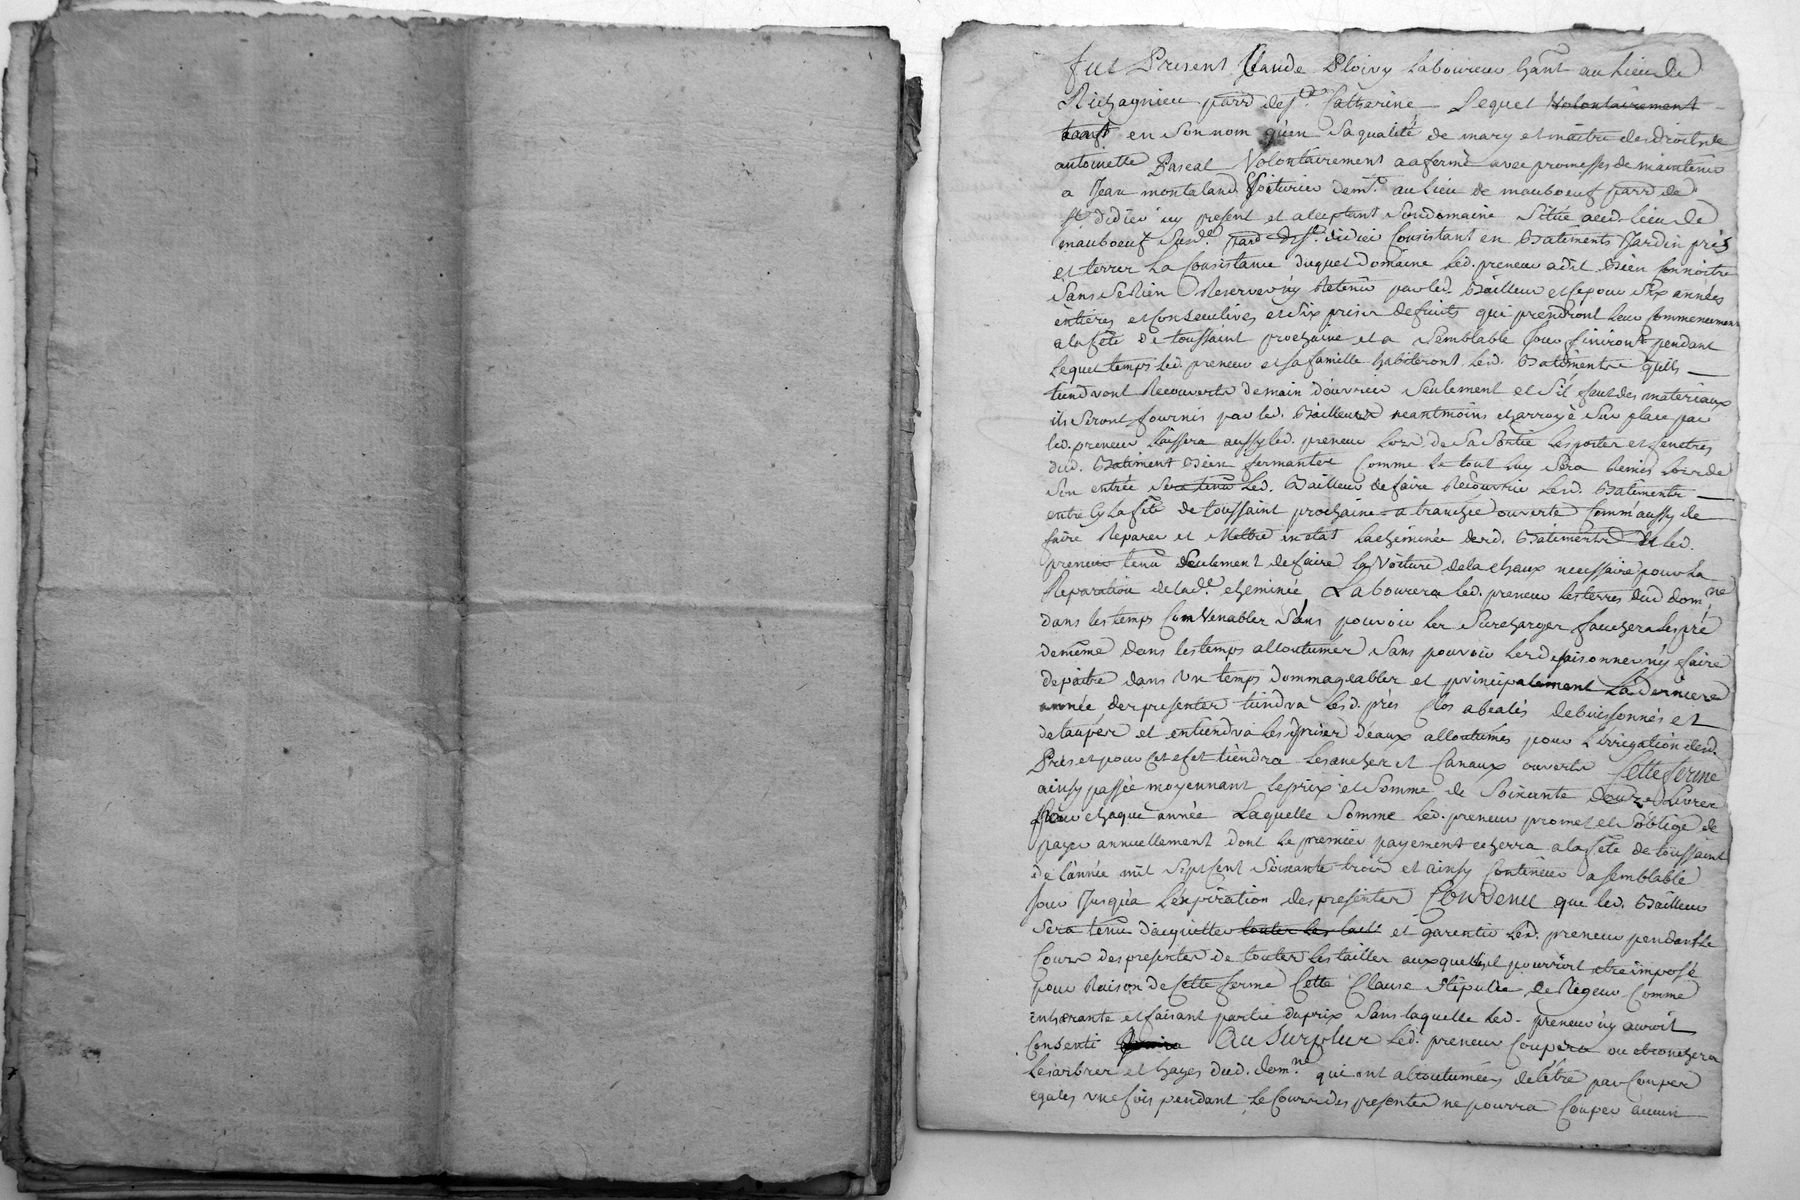 fut Present Claude Ploivy Laboureur hant au Lieu de
Richagnieu parr. de Ste. Catherine Lequel volontairement
tant en Son nom qu'en Sa qualité de mary et maitre des droits de
antoinette Pascal Volontairement a afermé avec promesses de maintenir
a Jean montaland Voiturier demt. au Lieu de mauboeuf parr. de
St. didier icy present et acceptant Son domaine Situé aud. Lieu de
mauboeuf Susd. parr. de St. didier Consistant en Batiments Jardin prés
et terres La Consistance duquel Domaine led. preneur a dit Bien Connoitre
Sans Se Rien Reserver ny Retenir par led. Bailleur et ce pour Six années
entieres et Consecutives et Six prises de fruits qui prendront leur Commencement
a la fête de toussaint prochaine et a Semblable Jour finiront pendant
Lequel temps led. preneur et sa famille habiteront lesd. Batiments qu'ils
tiendront Recouverts de main d'ouvrier Seulement et S'il faut des materiaux
ils Seront fournis par led. Bailleur neantmoins charroyé Sur place par
led. preneur Laissera aussy led. preneur Lors de Sa Sortie Les portes et fenetres
dud. Batiment Bien fermantes Comme Le tout luy Sera Remis Lors de
Son entrée Sera tenu led. Bailleur de faire Recouvrir lesd. Batiments
entre Cy La fête de toussaint prochaine a tranchée ouverte Comm'aussy de
faire Reparer et Mettre en etat La cheminée desd. Batiments led.
preneur tenu Seulement de faire La Voiture de la Chaux necessaire pour La
Reparation de lade. cheminée Labourera led. preneur les terres dud domne
dans les temps Convenables Sans pouvoir les Surcharger fauchera les prés
de même dans les temps accoutumés Sans pouvoir les desaisonner ny faire
depaitre dans Un temps dommageables et principalement La derniere
année des presentes tiendra lesd. prés Clos debuissonnés et
detaupés et entiendra les prises d'eaux accoutumés pour L'irrigation desd.
Prés et pour Cet efet tiendra Les et Canaux ouverts Cette ferme
ainsy passée moyennant le prix et Somme de Soixante douze Livres
Pour chaque année Laquelle Somme led. preneur promet et S'oblige de
payer annuellement dont le premier payement echerra a la fête de toussaint
de L'année mil Sept Cent Soixante trois et ainsy Continuer a Semblable
Jour Jusqu'a L'expiration des presentes Convenu que led. Bailleur
Sera tenu d'acquitter toutes les taill et garentir led. preneur pendant le
Cours des presentes de toutes les tailles auxquelles il pourroit etre imposé
pour Raison de Cette ferme Cette Clause Stipulée de Rigeur Comme
inhærante et faisant partie du prix Sans laquelle led. preneur n'y auroit
Consenti Au Surplus led. preneur Coupera ou ebronchera
Les arbres et hayes dud. dom.ne qui ont accoutumées de l'être par Coupes
egales une fois pendant le Cours des presentes ne pourra Couper aucun